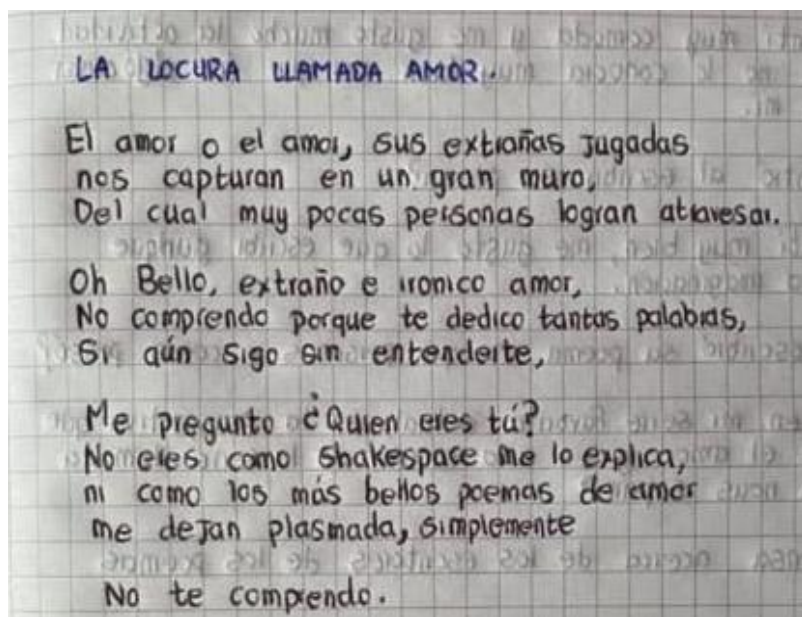 LA LOCURA LLAMADA AMOR.
El amor o el amor, sus extrañas jugadas
nos capturan en un gran muro,
Del cual muy pocas personas logran atravesar.
Oh Bello, extraño e ironico amor,
No comprendo porque te dedico tantas palabras,
Si aún sigo sin entenderte,
Me pregunto ¿Quien eres tú?
No eres como Shakespace me lo explica,
ni como los más bellos poemas de amor
me dejan plasmada, simplemente
No te comprendo.